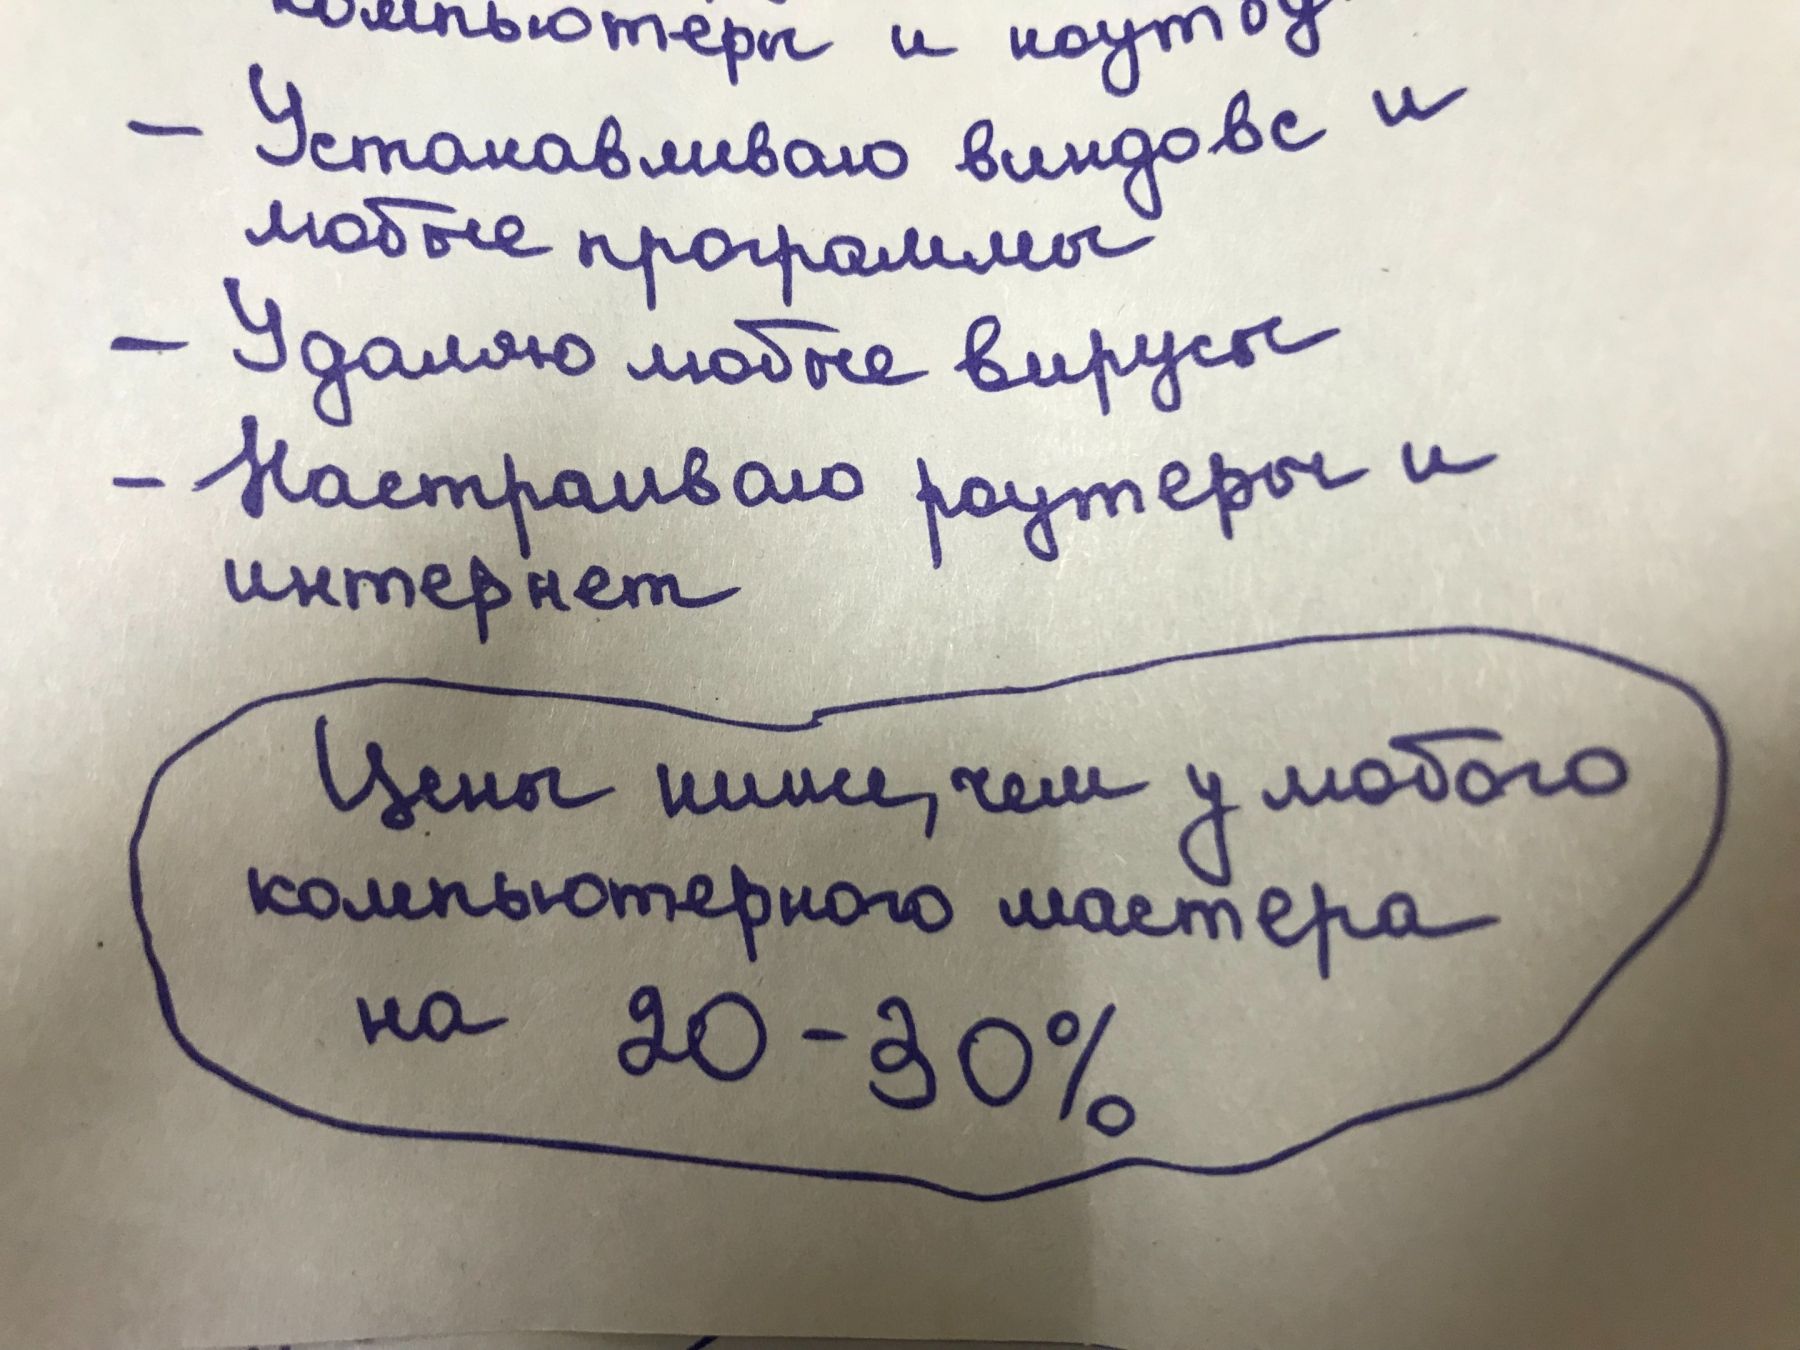 компьютеры и ноутбу
- Устанавливаю виндовс и
любые программы
- Удаляю любые вирусы
- Настраиваю роутеры и
интернет
Цены ниже, чем у любого
компьютерного мастера
на 20-30%